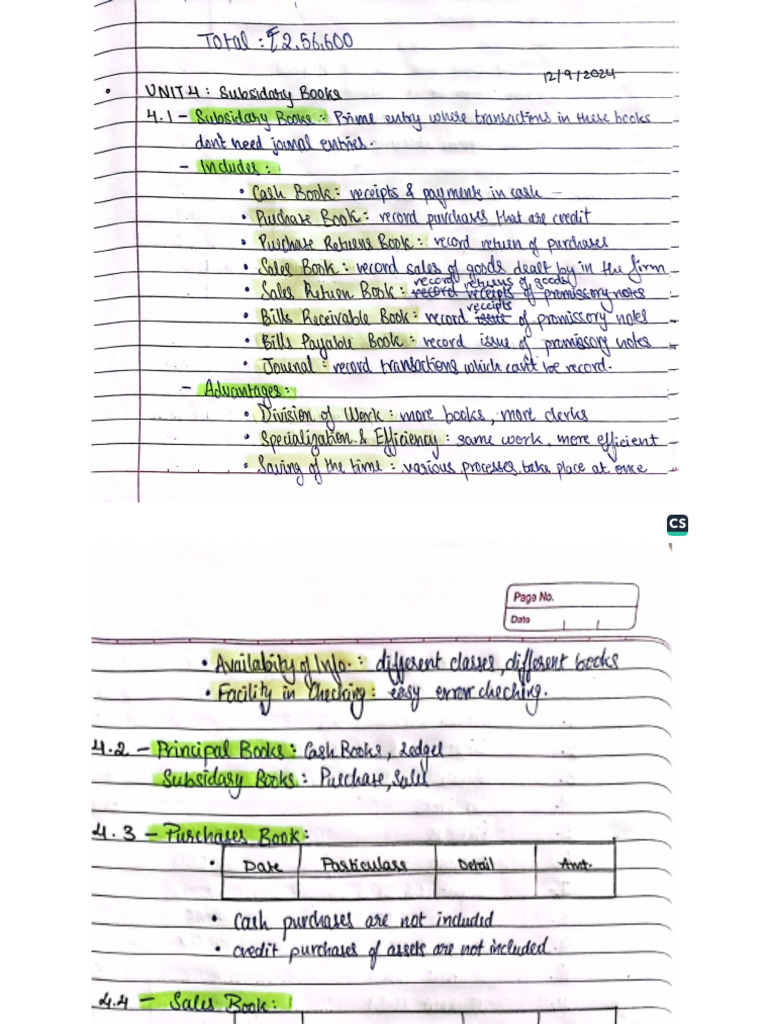 Total : ₹2,56,600
12/9/2024
• UNIT 4 : Subsidary Books
4.1 - Subsidary Books : Prime entry where transactions in these books
don't need journal entries.
- Includes :
• Cash Book : receipts & payments in cash -
• Purchase Book : record purchases that are credit
• Purchase Returns Book : record return of purchases
• Sales Book : record sales of goods dealt by in the firm
record returns of goods
• Sales Return Book : record receipts of promissory notes
receipts
• Bills Receivable Book : record issue of promissory notes
• Bills Payable Book : record issue of promissory notes
• Journal : record transactions which can't be record.
- Advantages :
• Division of Work : more books, more clerks
• Specialization & Efficiency : same work, more efficient
• Saving of the time : various processes take place at once
CS
Page No.
Date
• Availabity of Info. : different classes, different books
• Facility in Checking : easy error checking.
4.2 - Principal Books : Cash Books, Ledger
Subsidary Books : Purchase, Sales
4.3 - Purchases Book :
• Date Particulars Detail Amt.
• Cash purchases are not included
• credit purchases of assets are not included.
4.4 - Sales Book :